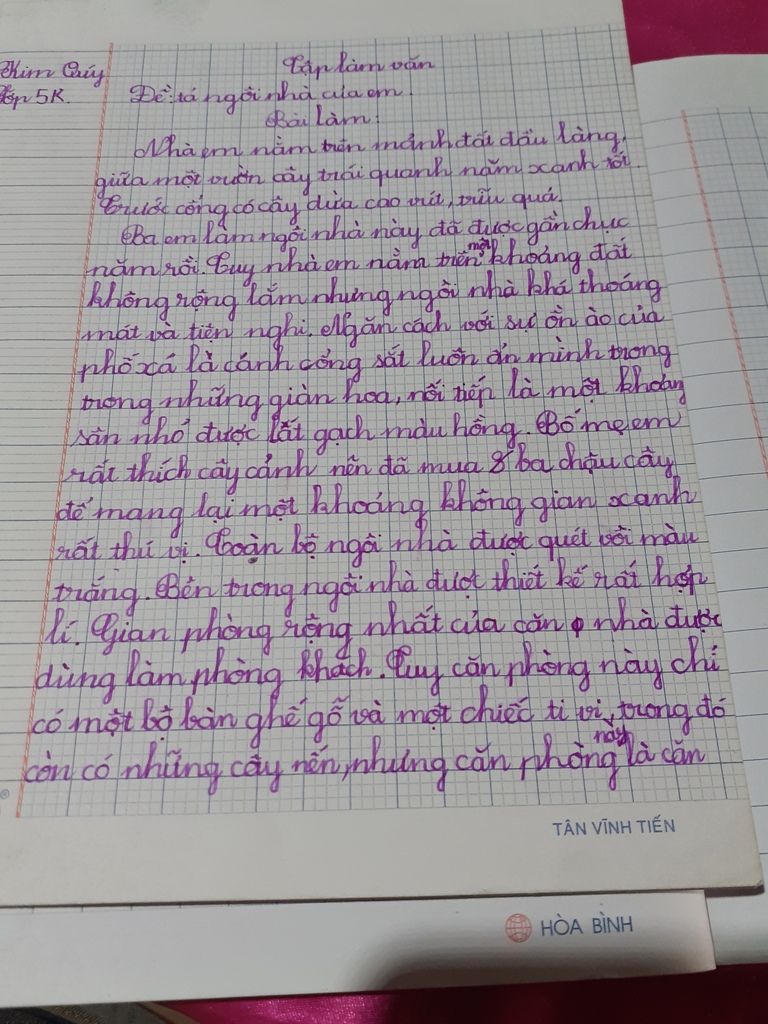 Kim Quý
Lớp 5K.
Tập làm văn
Đề: tả ngôi nhà của em.
Bài làm:
Nhà em nằm trên mảnh đất đầu làng,
giữa một vườn cây trái quanh năm xanh tốt.
Trước cổng có cây dừa cao vút, trĩu quả.
Ba em làm ngôi nhà này đã được gần chục
năm rồi. Tuy nhà em nằm trên một khoảng đất
không rộng lắm nhưng ngôi nhà khá thoáng
mát và tiện nghi. Ngăn cách với sự ồn ào của
phố xá là cánh cổng sắt luôn ẩn mình trong
trong những giàn hoa, nối tiếp là một khoảng
sân nhỏ được lát gạch màu hồng. Bố mẹ em
rất thích cây cảnh nên đã mua ba chậu cây
để mang lại một khoảng không gian xanh
rất thú vị. Toàn bộ ngôi nhà được quét vôi màu
trắng. Bên trong ngôi nhà được thiết kế rất hợp
lí. Gian phòng rộng nhất của căn nhà được
dùng làm phòng khách. Tuy căn phòng này chỉ
có một bộ bàn ghế gỗ và một chiếc ti vi, trong đó
còn có những cây nến, nhưng căn phòng này là căn
TÂN VĨNH TIẾN
HÒA BÌNH